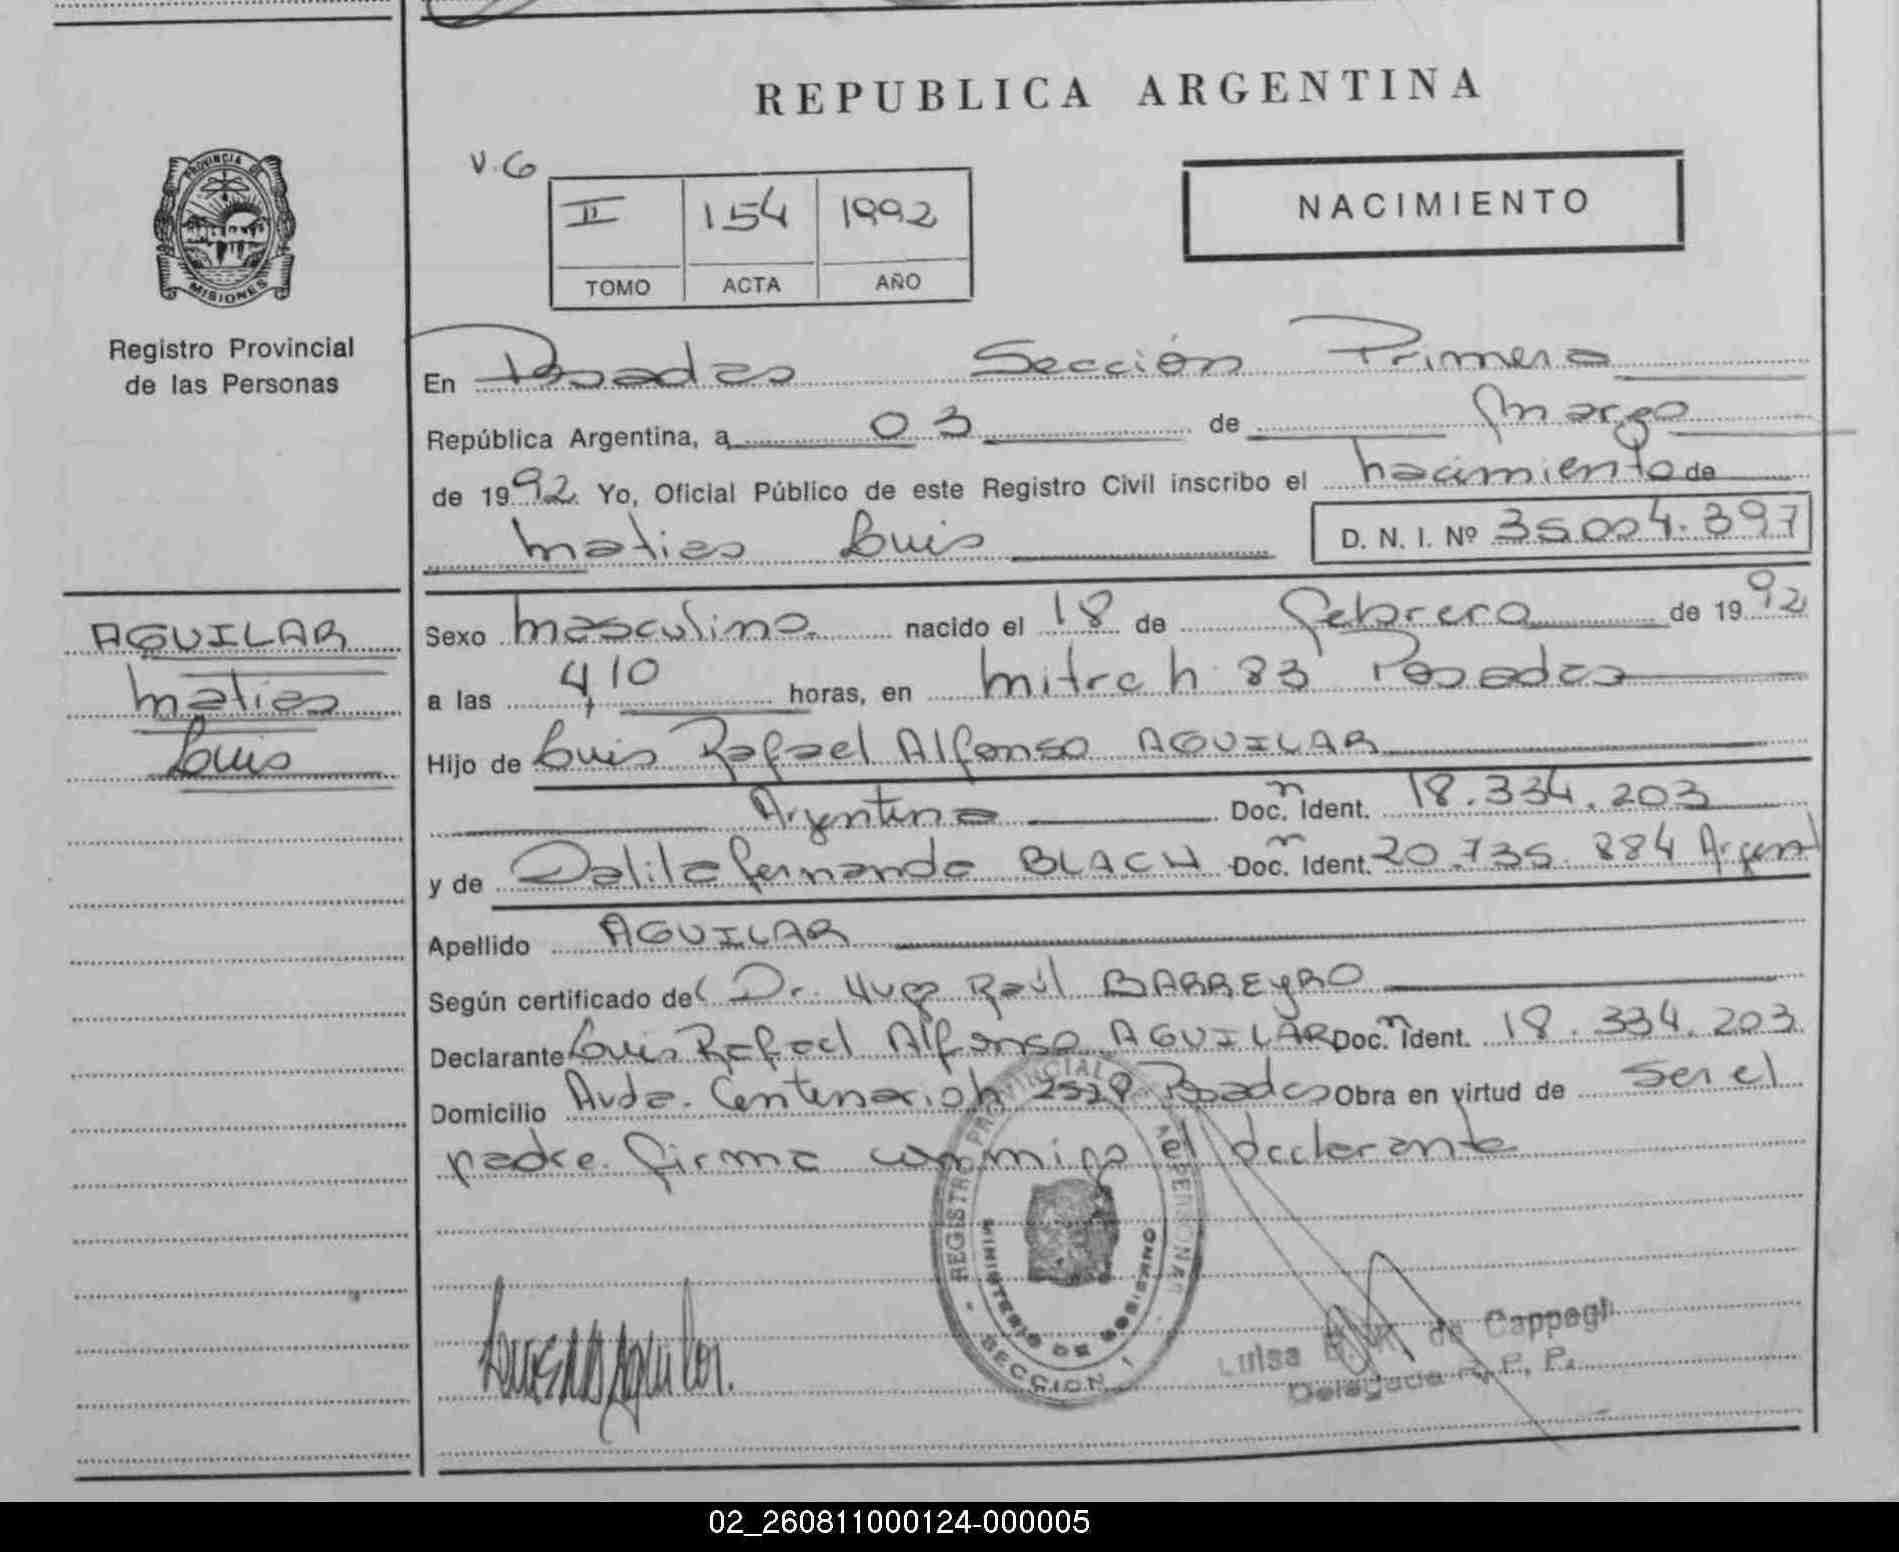 REPUBLICA ARGENTINA
V.G
II 154 1992
TOMO ACTA AÑO
NACIMIENTO
PROVINCIA DE MISIONES
Registro Provincial
de las Personas
En Posadas Sección Primera
República Argentina, a 03 de marzo
de 1992. Yo, Oficial Público de este Registro Civil inscribo el nacimiento de
Matias Luis D. N. I. Nº 35.004.397
AGUILAR
Matias
Luis
Sexo masculino nacido el 18 de febrero de 1992
a las 4,10 horas, en Mitre h 83 Posadas
Hijo de Luis Rafael Alfonso AGUILAR
Argentino Doc. n Ident. 18.334.203
y de Dalila Fernanda BLACH Doc. n Ident. 20.735.884 Argent
Apellido AGUILAR
Según certificado del Dr. Hugo Raúl BARREYRO
Declarante Luis Rafael Alfonso AGUILAR Doc. n Ident. 18.334.203
Domicilio Avda. Centenario h Posadas Obra en virtud de ser el
padre. Firma conmigo el declarante
REGISTRO PROVINCIAL DE LAS PERSONAS
MINISTERIO DE GOBIERNO
SECCION 1
Luisa de
Delegada R. P. P.
02_260811000124-000005